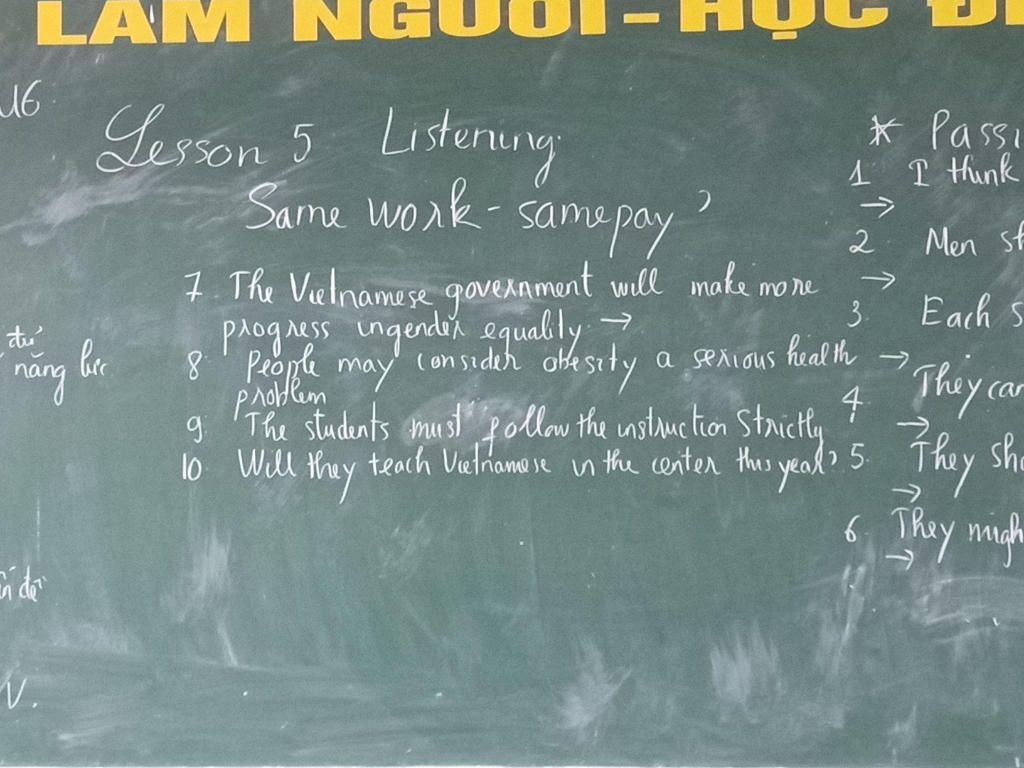 LÀM NGƯỜI - HỌC ĐỂ
U6
Lesson 5 Listening
Same work - same pay
7 The Vietnamese government will make more
progress in gender equality →
8 People may consider obesity a serious health
problem
9 The students must follow the instruction strictly
10 Will they teach Vietnamese in the center this year?
năng lực
V.
* Passi
1 I think
→
2 Men st
→
3. Each s
→
4 They can
→
5. They sho
→
6. They migh
→